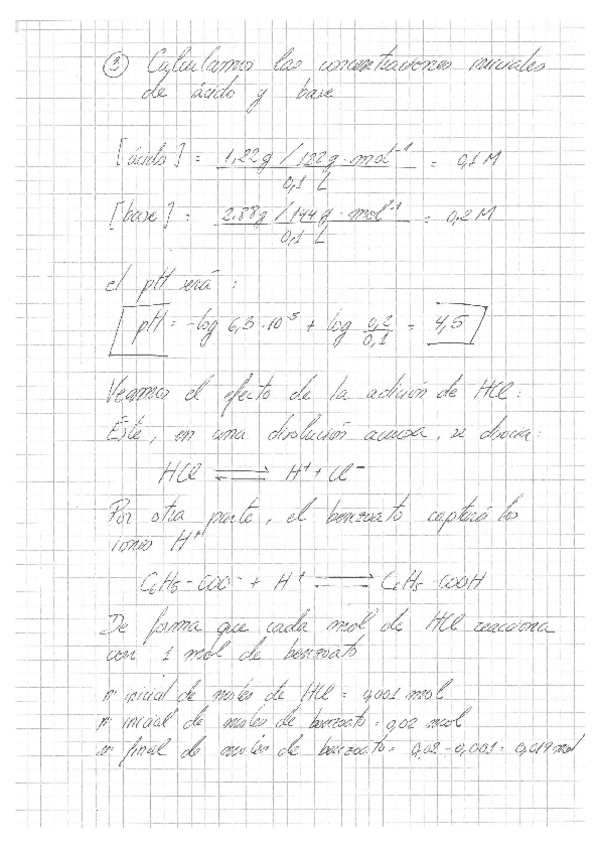 ③ Calculamos las concentraciones iniciales
de ácido y base
[ácido] = 1,22g / 122g·mol⁻¹ / 0,1 L = 0,1 M
[base] = 2,88g / 144g·mol⁻¹ / 0,1 L = 0,2 M
el pH será:
pH = -log 6,3·10⁻⁵ + log 0,2/0,1 = 4,5
Veamos el efecto de la adición de HCl:
Éste, en una disolución acuosa, se disocia:
HCl ⇌ H⁺ + Cl⁻
Por otra parte, el benzoato captará los
iones H⁺
C₆H₅-COO⁻ + H⁺ ⇌ C₆H₅-COOH
De forma que cada mol de HCl reacciona
con 1 mol de benzoato
nº inicial de moles de HCl = 0,001 mol
nº inicial de moles de benzoato = 0,02 mol
nº final de moles de benzoato = 0,02 - 0,001 = 0,019 mol